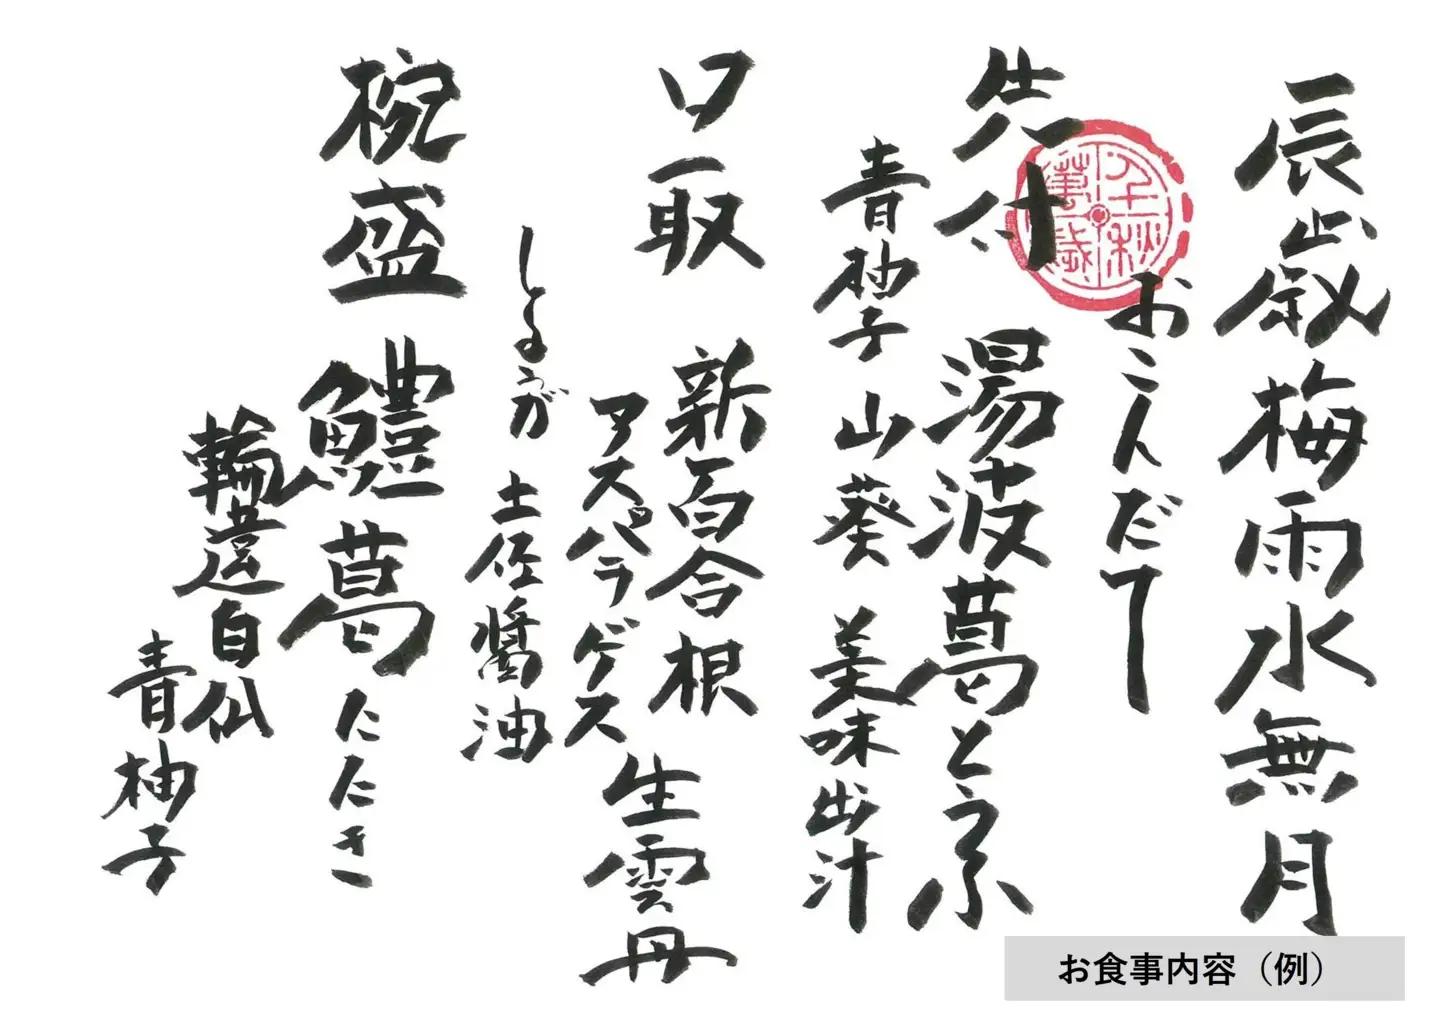 辰歳梅雨水無月
おこんだて
先付 湯波葛とうふ
青柚子 山葵 美味出汁
口取 新百合根 生雲丹
アスパラゲス
しょうが 土佐醤油
椀盛 鱧葛たたき
輪違白仙
青柚子
千秋
萬歳
お食事内容（例）